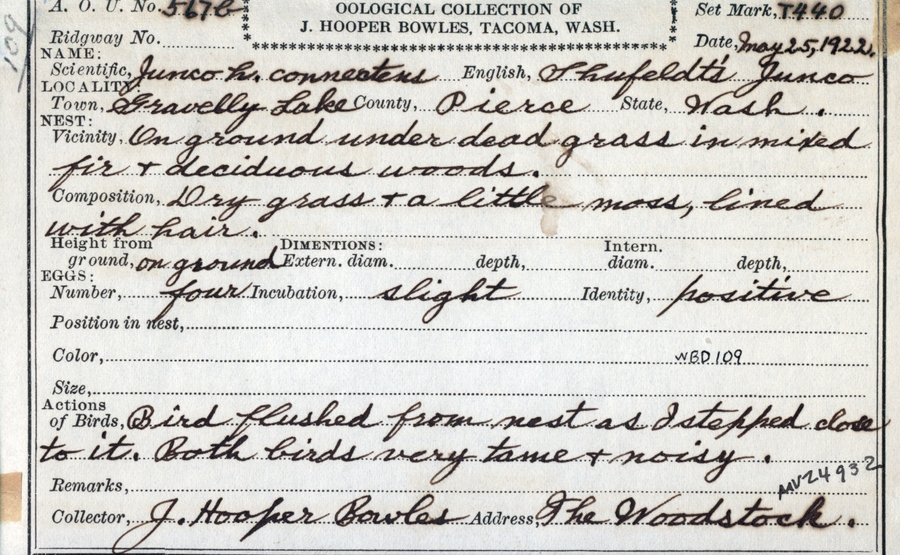 A. O. U. No. 567b
OOLOGICAL COLLECTION OF
J. HOOPER BOWLES, TACOMA, WASH.
Set Mark, T440
Ridgway No.
Date, May 25, 1922.
109
NAME:
Scientific, Junco h. connectens English, Shufeldt's Junco
LOCALITY:
Town, Gravelly Lake County, Pierce State, Wash.
NEST:
Vicinity, On ground under dead grass in mixed
fir + deciduous woods.
Composition, Dry grass + a little moss, lined
with hair.
Height from ground, on ground DIMENTIONS: Extern. diam. depth, Intern. diam. depth,
EGGS:
Number, four Incubation, slight Identity, positive
Position in nest,
Color, WBD 109
Size,
Actions
of Birds, Bird flushed from nest as I stepped close
to it. Both birds very tame + noisy.
Remarks,
Collector, J. Hooper Bowles Address, The Woodstock.